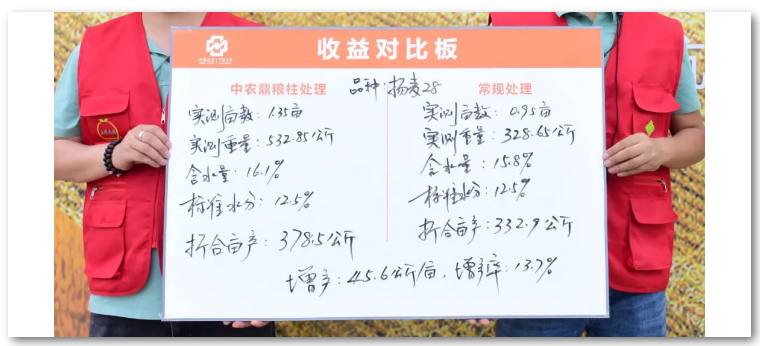 收益对比板
品种：扬麦28
中农鼎粮柱处理
实测亩数：1.35亩
实测重量：532.85公斤
含水量：16.1%
标准水分：12.5%
折合亩产：378.5公斤
常规处理
实测亩数：0.95亩
实测重量：328.65公斤
含水量：15.8%
标准水分：12.5%
折合亩产：332.9公斤
增产：45.6公斤/亩，增产率：13.7%